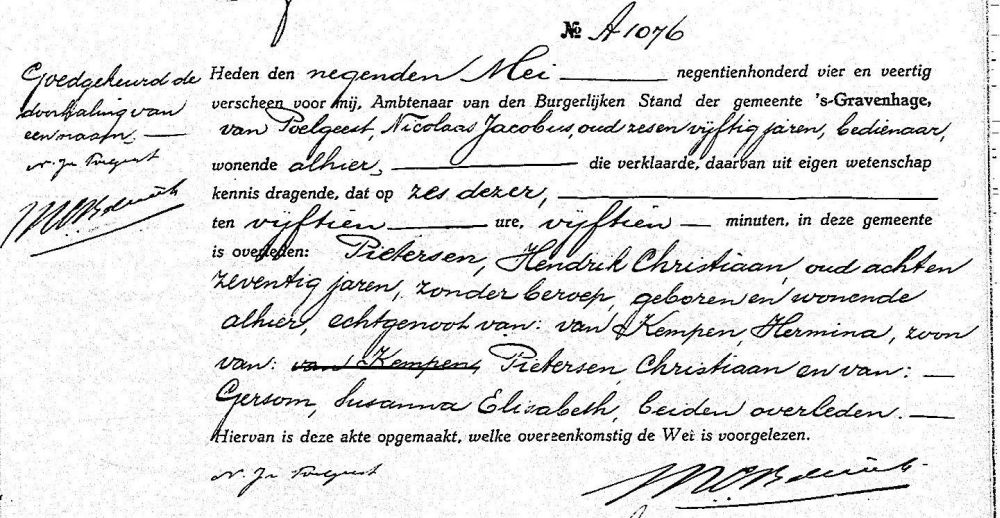 № A1076
Goedgekeurd de
doorhaling van
een naam. —
Heden den negenden Mei — negentienhonderd vier en veertig
verscheen voor mij, Ambtenaar van den Burgerlijken Stand der gemeente 's-Gravenhage,
van Poelgeest, Nicolaas Jacobus, oud zesen vijftig jaren, bedienaar,
wonende alhier, — die verklaarde, daarvan uit eigen wetenschap
kennis dragende, dat op zes dezer, —
ten vijftien — ure, vijftien — minuten, in deze gemeente
is overleden: Pietersen, Hendrik Christiaan, oud achten
zeventig jaren, zonder beroep, geboren en wonende
alhier, echtgenoot van: van Kempen, Hermina, zoon
van: van Kempen, Pietersen, Christiaan en van: —
Gersom, Susanna Elizabeth, beiden overleden. —
Hiervan is deze akte opgemaakt, welke overeenkomstig de Wet is voorgelezen.